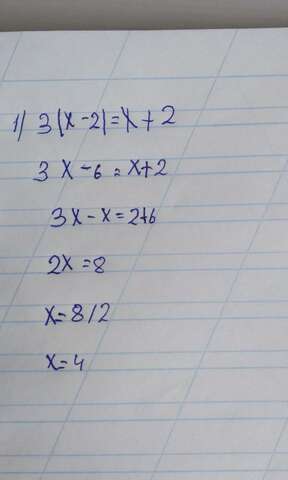 1) 3(x-2)=x+2
3x-6=x+2
3x-x=2+6
2x=8
x=8/2
x=4